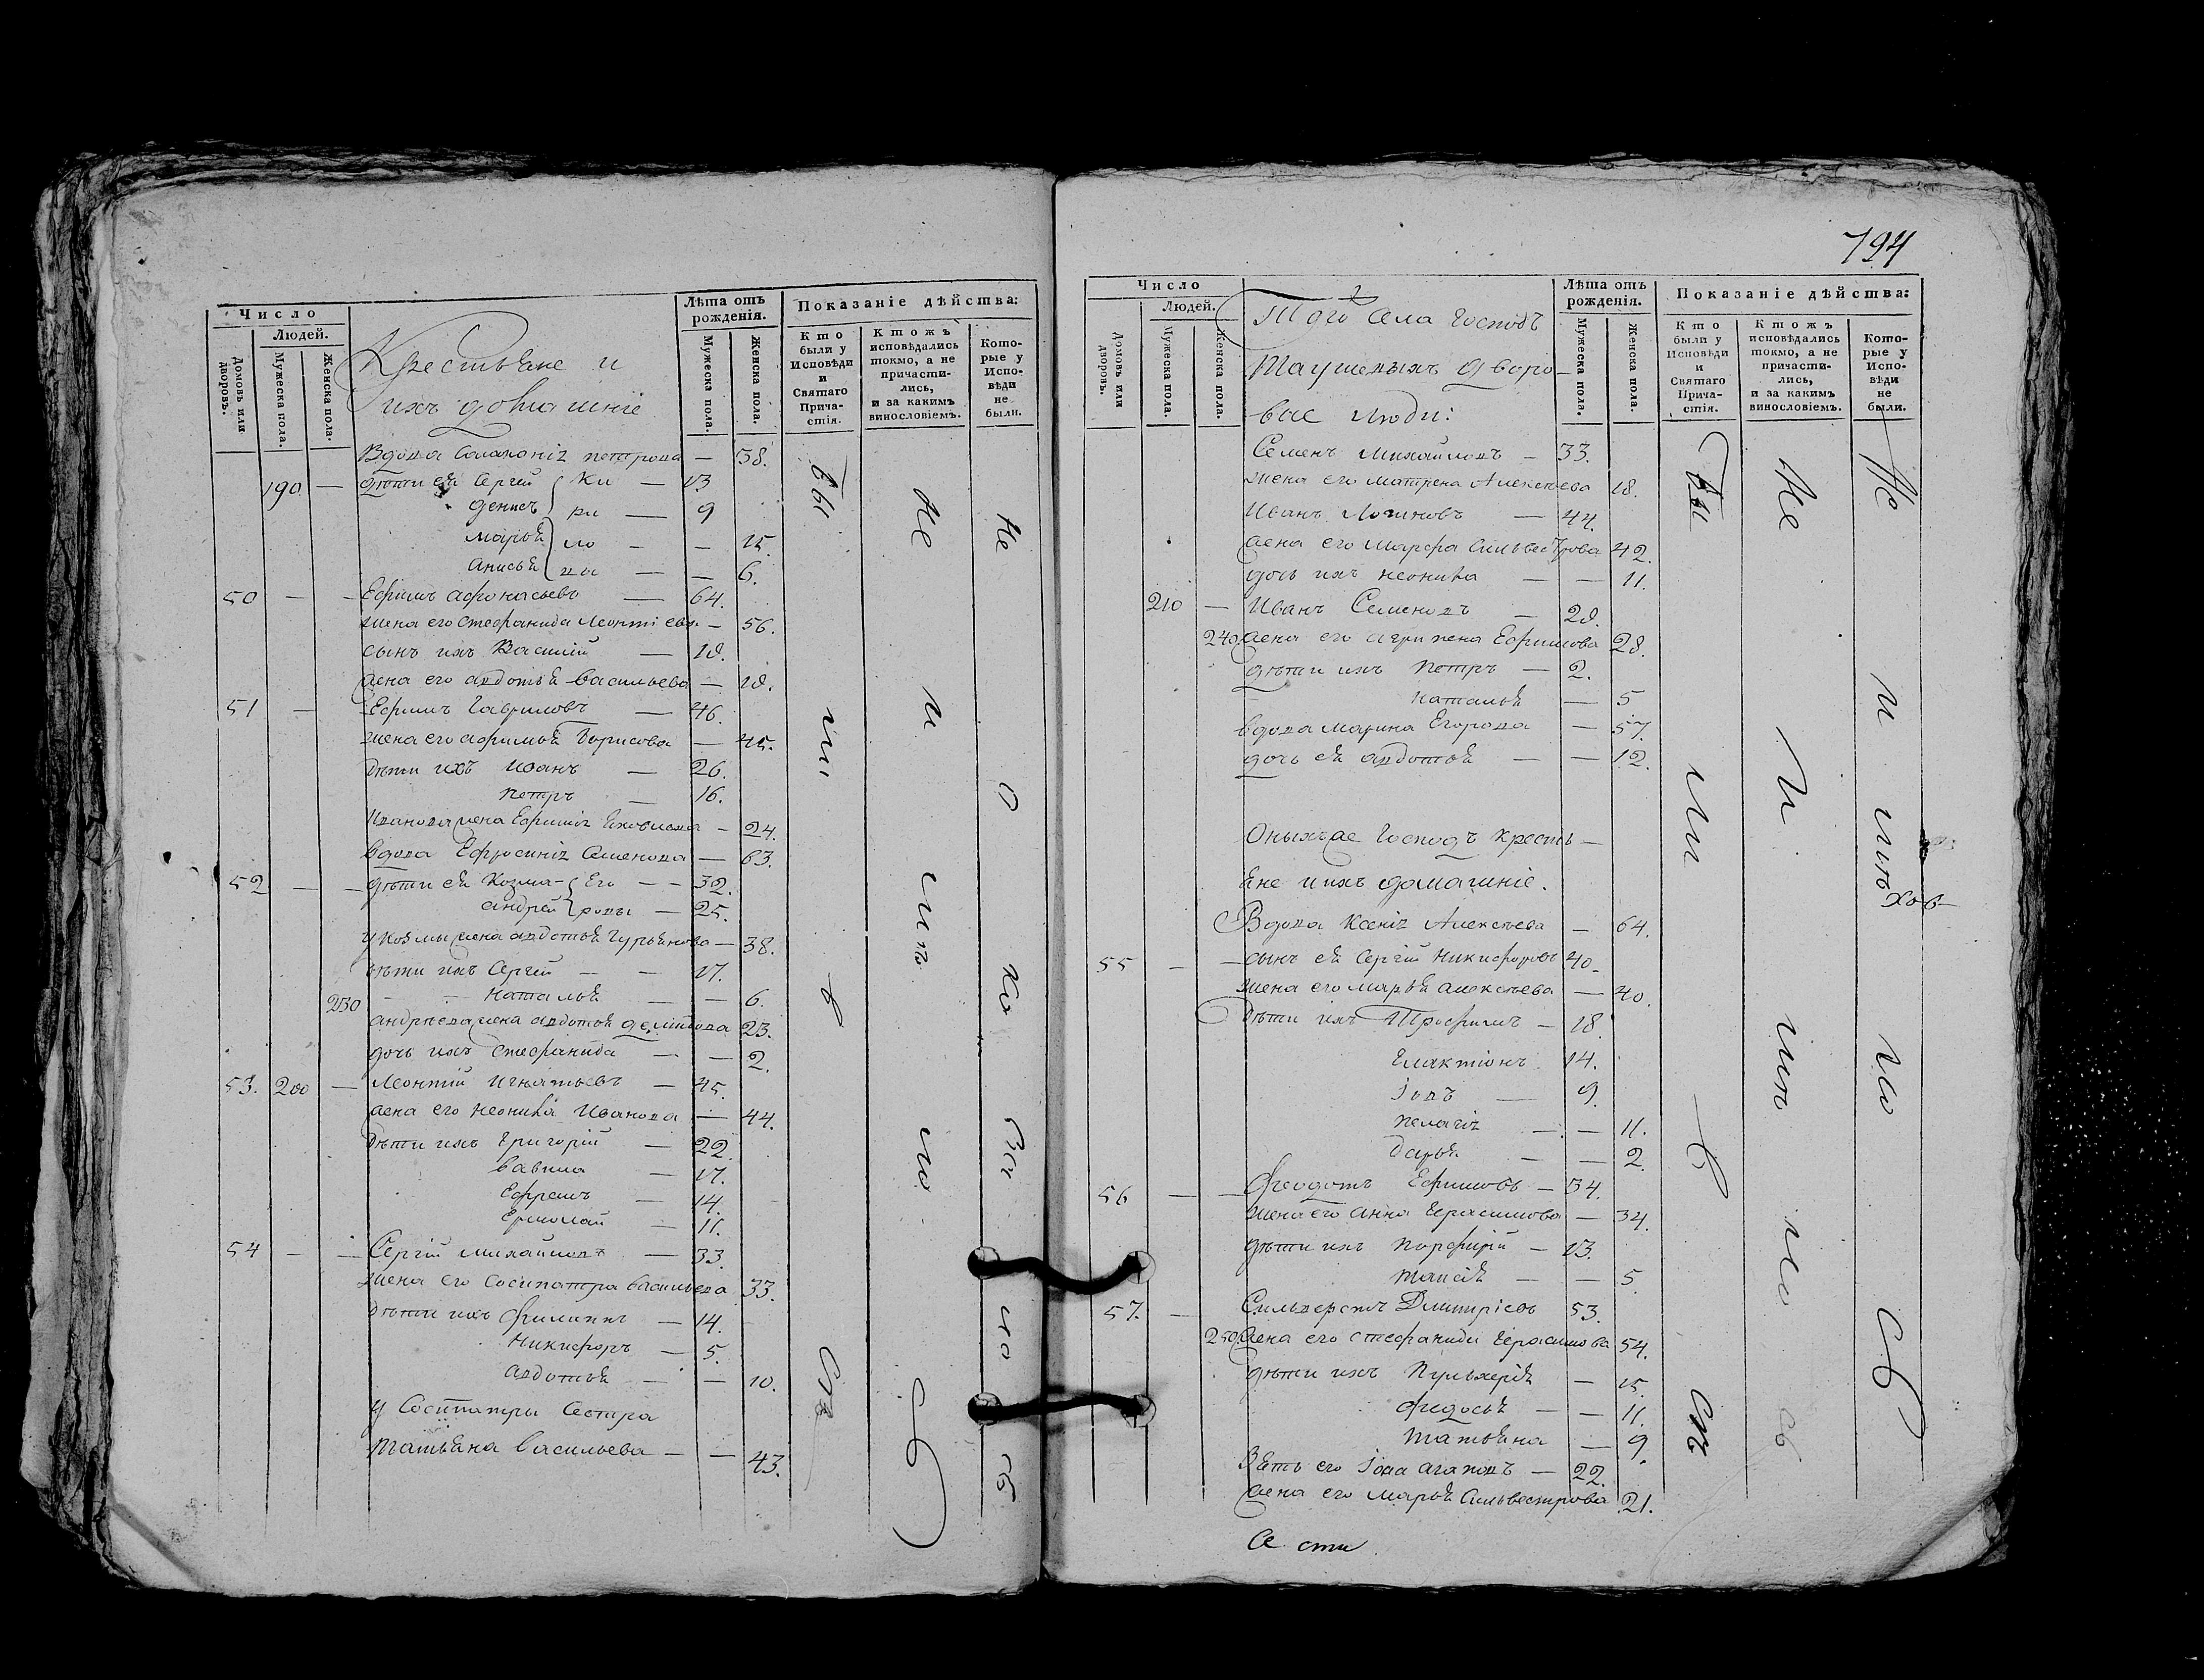 Число
Людей.
Домовъ или дворовъ.
Мужеска пола.
Женска пола.
Крестьяне и
ихъ домашніе
Лѣта отъ рожденія.
Мужеска пола.
Женска пола.
Показаніе дѣйства:
Кто были у Исповѣди и Святаго Прича-стія.
Ктожъ исповѣдались токмо, а не причасти-лись, и за какимъ винословіемъ.
Кото-рые у Испо-вѣди не были.
Вдова Соломонія петрова — 38.
190 — дѣти ея Сергій — 13
денисъ — 9
марья — — 15.
анисья — — 6.
50 — — Ефимъ афонасьевъ — 64.
жена его стефанида Леонтіева — 56.
сынъ ихъ Василій — 18.
жена его авдотья васильева — 18.
51 — Ефимъ Гавриловъ — 46.
жена его афимья Борисова — 45.
дѣти ихъ иванъ — 26.
петръ — 16.
иванова жена Ефимія — 24.
вдова Ефросинія Семенова — 63.
52 — — дѣти ея Козма — Его — — 32.
андрей роды — 25.
у козмы жена авдотья гурьянова — 38.
дѣти ихъ Сергій — — 17.
230 — — наталья — — 6.
андреева жена авдотья демидова 23.
дочь ихъ стефанида — — 2.
53. 200 — Леонтій игнатьевъ — 45.
жена его неонила Иванова — 44.
дѣти ихъ григорій — 22.
вавила — 17.
Ефремъ — 14.
Ермолай — 11.
54 — — Сергій михайловъ — 33.
жена его Сосипатра васильева 33.
дѣти ихъ филиппъ — 14.
никифоръ — 5.
авдотья — — 10.
у Сосипатры Сестра
татьяна васильева — — 43.
794
Число
Людей.
Домовъ или дворовъ.
Мужеска пола.
Женска пола.
Того Села Господъ
дворо-
вые люди:
Лѣта отъ рожденія.
Мужеска пола.
Женска пола.
Показаніе дѣйства:
Кто были у Исповѣди и Святаго Прича-стія.
Ктожъ исповѣдались токмо, а не причасти-лись, и за какимъ винословіемъ.
Кото-рые у Испо-вѣди не были.
Семенъ михайловъ — 33.
жена его матрена Алексеева 18.
Иванъ Логиновъ — 44.
жена его марфа Сильвестрова 42.
дочь ихъ неонила — — 11.
210 — Иванъ Семеновъ — 28.
240 жена его агрипена Ефимова 28.
дѣти ихъ петръ — 2.
наталья — 5
вдова марина Егорова — 57.
дочь ея авдотья — — 12.
Оныхъ же Господъ кресть-
яне и ихъ домашніе.
Вдова ксенія Алексеева — 64.
55 — — сынъ ея Сергій никифоровъ 40.
жена его марья алексеева — 40.
дѣти ихъ Трофимъ — 18.
Галактіонъ 14.
Іовъ — 9.
пелагія — — 11.
дарья — — 2.
56 — — Феодотъ Ефимовъ — 34.
жена его анна Герасимова — 34.
дѣти ихъ порфирій — 13.
таисія — — 5.
57. — Сильверстъ Дмитріевъ 53.
250 жена его стефанида герасимова 54.
дѣти ихъ пульхерія — 15.
федосья — — 11.
татьяна — 9.
Зять его Іона агаповъ — 22.
жена его марья Сильвестрова 21.